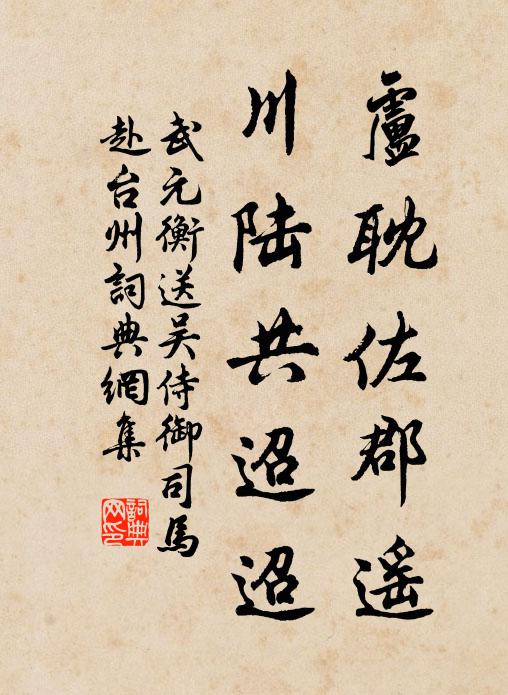 盧耽佐郡遥
川陆共迢迢
武元衡送吴侍御司馬
赴台州詞典網集
詞典网印